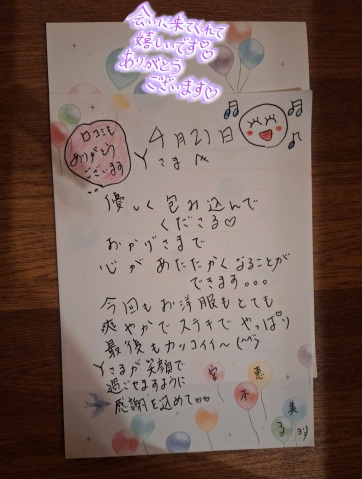 会いに来てくれて
嬉しいです♡
ありがとう
ございます♡
口コミも
ありがとう
ございます
4月21日
Yさまへ
優しく包み込んで
くださる♡
おかげさまで
心があたたかくなることが
できます。。。
今回もお洋服もとても
爽やかでステキでやっぱり
最後もカッコイイ〜(^^)
Yさまが笑顔で
過ごせますように
感謝を込めて♡♡
恵
美